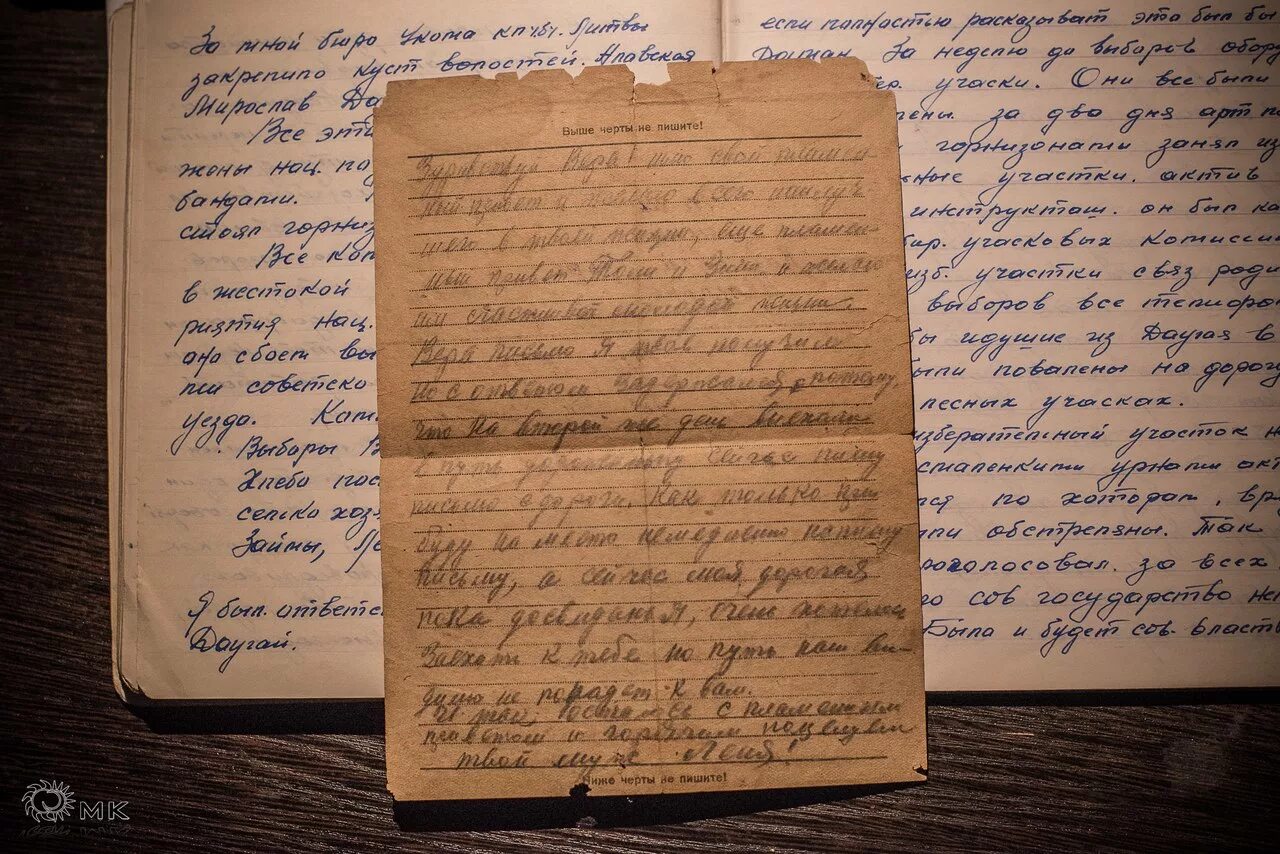 За мной бюро Укома КП/б/. Литвы
закрепило куст волостей. Алавская
Мирослав Да
Все эти
жены нац. по
бандами.
стоял горниз
Все
в жестокой
риятия нац.
она сбост вы
ли советско
уезда.
Выбары В
Хлебо пос
селько хоз
Займы,
Я был ответс
Даугай.
если полностью расказыват это был бы
За неделю до выборов обору
ер. учаски. Они все были
ены. за два дня арт п
горнизонати занял из
ные участки. актив
инструкташ. он был ка
бир. учасковых комиссии
изб. участки связ ради
выборов все телефон
бы идущие из Даугая в
ыли повалены на дорогу
лесных учасках.
избератильный участок н
смаленкими урнами акт
ся по хотодам, вр
ли обстреляны. Так
оголосовал. за всех
го сов государство не
Была и будет сов. власть
Выше черты не пишите!
Здравствуй Вера! шлю свой пламен-
ный привет и желаю всего наилуч-
шего в твоей жизни, еще пламен-
ный привет Толи и Зини и желаю
им счастливой молодой жизни.
Вера письмо я твое получил
но с ответом задержался, потому
что на второй же день выехали
в путь сейчас пишу
письмо с дороги. Как только
буду на месте немедленно напишу
письмо, а сейчас моя дорогая
пока досвиданья, очень хотелось
заехать к тебе но путь наш ви-
димо не попадет к вам.
И так, остаюсь с пламенным
приветом и горячим поцелуем
твой муж Леня!
Ниже черты не пишите!
МК